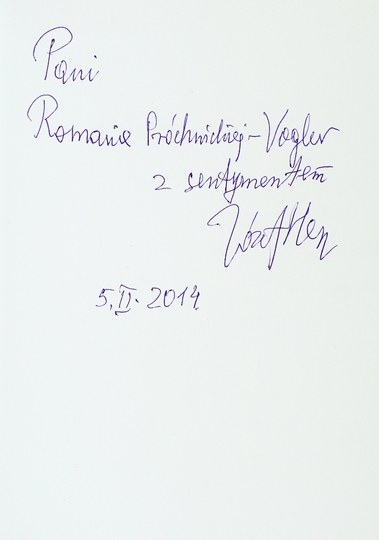 Pani
Romanie Próchnickiej-Vogler
z sentymentem
Józef Hen
5.II. 2014